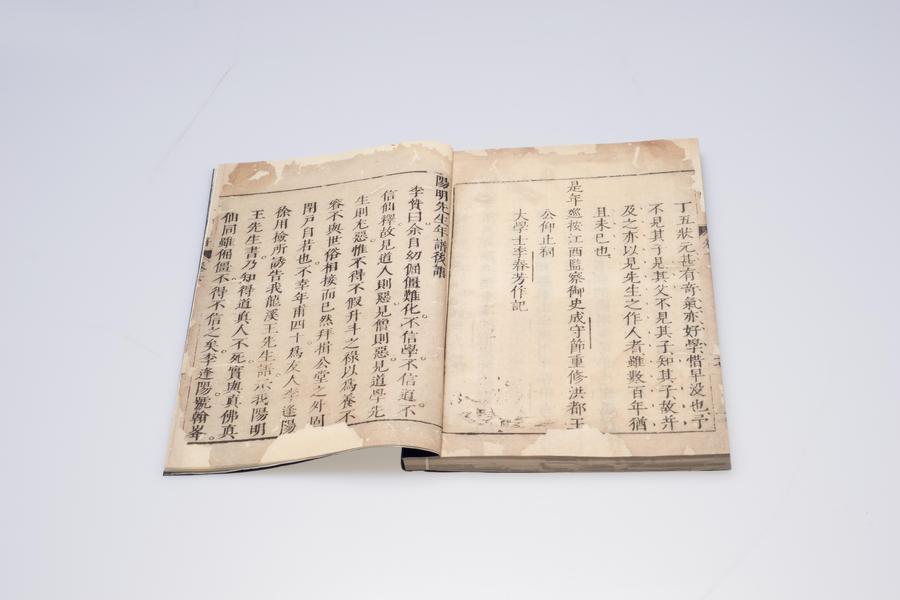 丁丑狀元甚有奇氣亦好學惜早没也予
不見其子見其父不見其子知其子故并
及之亦以見先生之作人者雖數百年猶
且未已也
是年巡按江西監察御史成守節重修洪都王
公仰止祠
大學士李春芳作記
陽明先生年譜後語
李贄曰余自幼倔彊難化不信學不信道不
信仙釋故見道人則惡見僧則惡見道學先
生則尤惡惟不得不假升斗之祿以爲養不
容不與世俗相接而已然拜揖公堂之外固
閉戶自若也不幸年甫四十爲友人李逢陽
徐用檢所誘告我龍溪王先生語示我陽明
王先生書乃知得道真人不死實與真佛真
仙同雖倔彊不得不信之矣李逢陽號翰峯